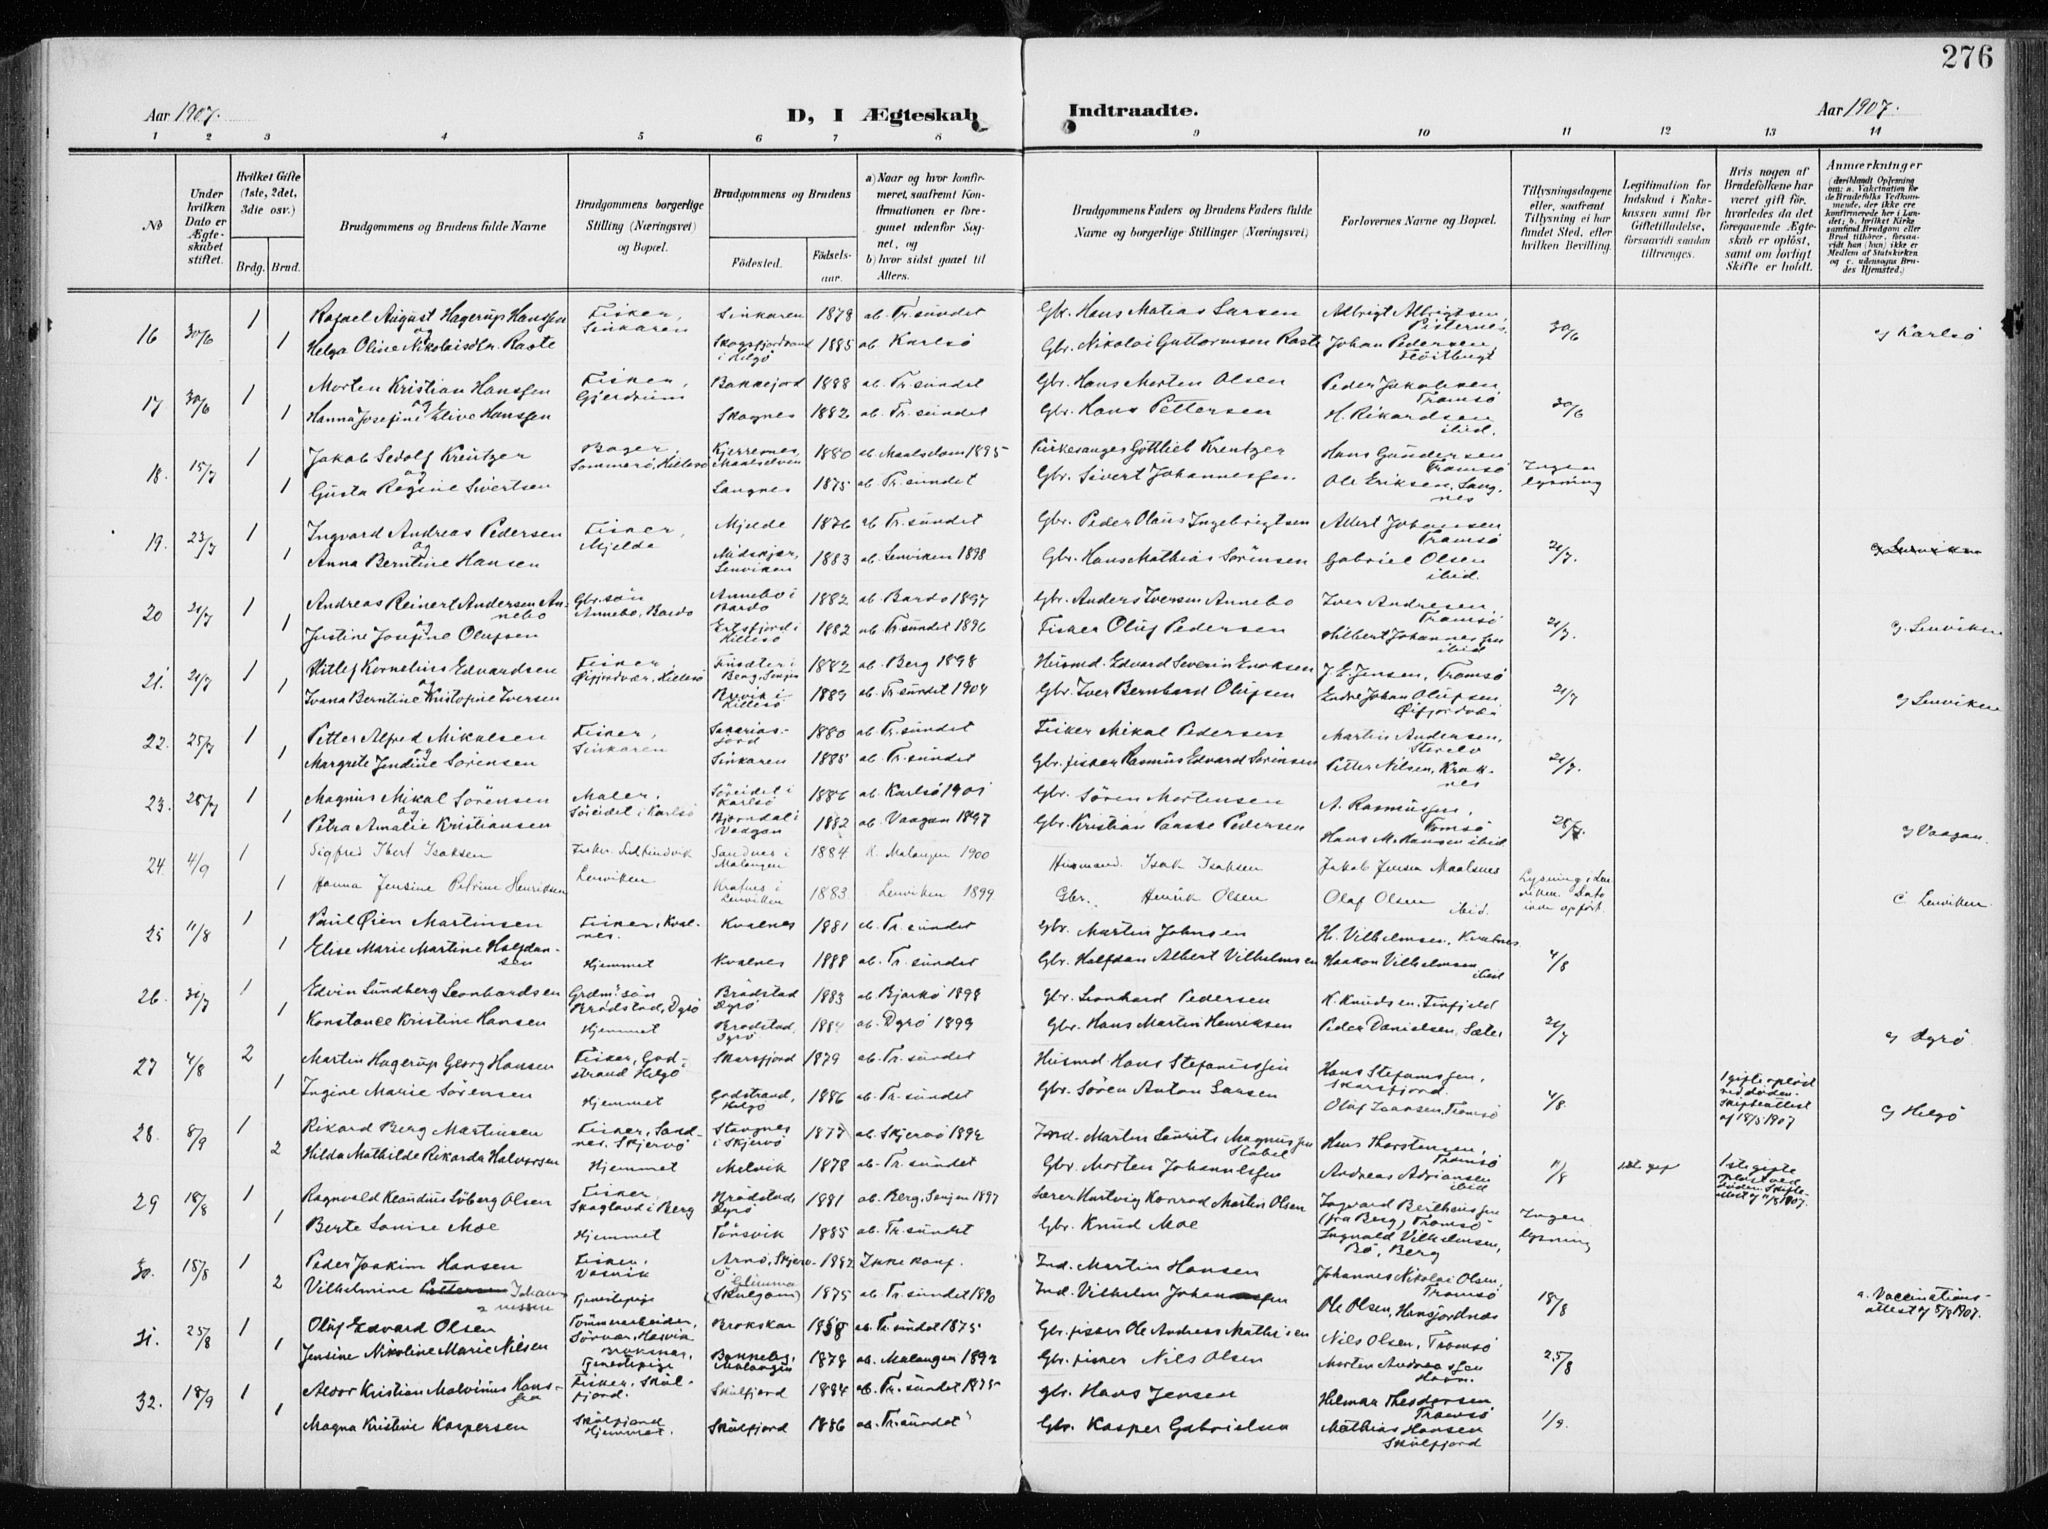 276
Aar 1907.
D, I Ægteskab Indtraadte.
Aar 1907.
1 2 3 4 5 6 7 8 9 10 11 12 13 14
No
Under hvilken Dato er Ægteskabet stiftet.
Hvilket Gifte (1ste, 2det, 3die osv.)
Brdg. Brud.
Brudgommens og Brudens fulde Navne
Brudgommens borgerlige Stilling (Næringsvei) og Bopæl.
Brudgommens og Brudens
Fødested. Fødselsaar.
a) Naar og hvor konfirmeret, saafremt Konfirmationen er foregaaet udenfor Sognet, og
b) hvor sidst gaaet til Alters.
Brudgommens Faders og Brudens Faders fulde Navne og borgerlige Stillinger (Næringsvei)
Forlovernes Navne og Bopæl.
Tillysningsdagene eller, saafremt Tillysning ei har fundet Sted, efter hvilken Bevilling.
Legitimation for Indskud i Enkekassen samt for Giftetilladelse, forsaavidt saadan tiltrænges.
Hvis nogen af Brudefolkene har været gift før, hvorledes da det foregaaende Ægteskab er opløst, samt om lovligt Skifte er holdt.
Anmærkninger
(deriblandt Oplysning om: a. Vaktination for de Brudefolks Vedkommende, der ikke ere konfirmerede her i Landet; b. hvilket Kirkesamfund Brudgom eller Brud tilhører, forsaavidt han (hun) ikke er Medlem af Statskirken og c. udensogns Brudes Hjemsted.)
16 30/6 1 Rafael August Hagerup Hanssen Fisker, Sinkaren Sinkaren 1878 ab. Tr.sundet Gbr. Hans Matias Larsen Albrigt Albrigtsen, 30/6 c, Karlsö
og
1 Helga Oline Nikolaisdtr. Raste i Helgö 1885 ab Karlsö Gbr. Nikolai Guttormsen Raste Johan Pedersen,
17 30/6 1 Morten Kristian Hanssen Fisker, Bakkejord 1888 ab. Tr.sundet Gbr. Hans Morten Olsen Peder Jakobsen Tromsö 30/6
og
1 Hanna Josefine Elive Hanssen Skognes 1882 ab. Tr.sundet Gbr. Hans Pettersen H. Rikardsen ibid.
18. 15/7 1 Jakob Sedolf Kreutzer Bager, Sommerö, Hillesö Maalselven 1880 ab. Maalselven 1895 Kirkesanger Gottlieb Kreutzer Hans Gundersen Tromsö Ingen lysning
og
1 Gusta Regine Sivertsen Langnes 1875 ab Tr.sundet Gbr. Sivert Johannessen Ole Eriksen, Langnes
19. 23/7 1 Ingvard Andreas Pedersen Fisker, Mjelde Mjelde 1876 ab Tr.sundet Gbr. Peder Olaus Ingebrigtsen Albert Johansen Tromsö 21/7. c, Lenviken
og
1 Anna Berntine Hansen Lenviken 1883 ab. Lenviken 1898 Gbr. Hans Mathias Sörensen Gabriel Olsen ibid.
20 21/7 1 Andreas Reinert Andersen Annebo Gbr.sön Annebo, Bardo Annebo i Bardo 1882 ab Bardo 1897 Gbr. Anders Iversen Annebo Iver Andresen, Tromsö 21/7. c, Lenviken
og
1 Justine Josefine Olufsen Ertsfjord i Hillesö 1882 ab. Tr.sundet 1896 Fisker Oluf Pedersen Hilbert Johannessen ibid
21. 21/7 1 Hitlef Kornelius Edvardsen Fisker, Öifjordvær, Hillesö Berg, Senjen 1882 ab. Berg 1898 Husmd. Edvard Severin Enoksen J. E. Jensen, Tromsö 21/7 c, Lenviken
og
1 Ivana Berntine Kristofine Iversen i Hillesö 1889 ab Tr.sundet 1904 Gbr. Iver Bernhard Olufsen Endre Johan Olufsen
22. 25/7 1 Petter Alfred Mikalsen Fisker, Sinkaren Sakariasfjord 1880 ab. Tr.sundet Fisker Mikal Pedersen Martin Andersen, 21/7.
og
1 Margrete Jendine Sörensen Sinkaren 1885 ab. Tr.sundet Gbr. fisker Rasmus Edvard Sörensen Petter Nilsen, Kraknes
23. 28/7 1 Magnus Mikal Sörensen Maler, Söreidet i Karlsö Söreidet i Karlsö 1886 ab. Karlsö 1901 Gbr. Sören Mortensen A. Rasmussen, Tromsö 28/7. c, Vaagan
og
1 Petra Amalie Kristiansen Bjorndal i Vaagan 1882 ab. Vaagan 1897 Gbr. Kristian Paasse Pedersen Hans M. Hansen ibid
24 4/9 1 Sigfred Ibert Isaksen Lenviken Sandnes i Malangen 1884 Malangen 1900 Husmand. Isak Isaksen Jakob Jensen Maalsnes Lysning i Lenviken. Dato ikke opført. c. Lenviken.
1 Hanna Jensine Petrine Henriksen i Lenviken 1883 Lenviken 1899 Gbr. Henrik Olsen Olaf Olsen ibid.
25 11/8 1 Paul Øien Martinsen Fisker, Kvalnes. Kvalnes 1881 ab. Tr.sundet Gbr. Martin Johnsen H. Vilhelmsen, Kvalnes 4/8
1 Elise Marie Martine Halfdansen Hjemmet Kvalnes 1888 ab. Tr.sundet Gbr. Halfdan Albert Vilhelmsen Haakon Vilhelmsen ibid
26 31/7 1 Edvin Lundberg Leonhardsen Grdm.sön Brödstad, Dyrö Brödstad Dyrö 1883 ab Bjarkö 1898 Gbr. Leonhard Pedersen K. Knudsen, Finfjeld 21/7 c, Dyrö
1 Konstance Kristine Hansen Hjemmet Brödstad, Dyrö 1884 ab. Dyrö 1899 Gbr. Hans Martin Henriksen Peder Danielsen, Sæter
27 4/8 2 Martin Hagerup Georg Hansen Fisker, Godstrand Helgö Skarsfjord 1879 ab. Tr.sundet Husmd. Hans Stefanussen Hans Stefanussen, Skarsfjord. 4/8. 1 gifte opløst ved döden. Skifteattest af 18/5 1907 c, Helgö
1 Ingine Marie Sörensen Hjemmet Godstrand, Helgö 1886 ab. Tr.sundet Gbr. Sören Anton Larsen Oluf Isaksen, Tromsö
28. 8/9 1 Rikard Berg Martinsen Fisker, Sandnes, Skjervö Stavgnes i Skjervö 1877 ab. Skjervö 1892 Ind. Martin Laurits Magnussen Hans Thorstensen, Tromsö 11/8 1ste gifte opløst ved döden. Skifteattest af 11/8 1907.
2 Hilda Mathilde Rikarda Halvorsen Hjemmet Melvik 1878 ab. Tr.sundet Gbr. Morten Johannessen Andreas Adriansen ibid
29 18/8 1 Ragnvald Keandius Löberg Olsen Fisker, Skagland i Berg Brödstad, Dyrö 1881 ab. Berg, Senjen 1897 Lærer Hartvig Konrad Martin Olsen Ingvard Berthensen (fra Berg), Tromsö Ingen lysning
1 Berte Lovise Moe Hjemmet Tönsvik 1885 ab. Tr.sundet Gbr. Knud Moe Ingvald Vilhelmsen, Bö, Berg
30. 18/8 1 Peder Joakim Hansen Fisker, Vasvik Arnö, Skjervö 1882 Ikke konf. Ind. Martin Hansen Johannes Nikolai Olsen, Tromsö 18/8 a. Vaccinationsattest af 5/8 1907.
2 Vilhelmine Pettersen Johannessen Tjenestepige Glimma (Skulgam) 1875 ab Tr.sundet 1890 Ind. Vilhelm Johannessen Ole Olsen, Hansjordnes
31. 25/8 1 Oluf Edvard Olsen Tömmerarbeider, Brokskar 1858 ab. Tr.sundet 1875 Gbr. fisker Ole Andreas Mathisen Nils Olsen, Tromsö 25/8
1 Jensine Nikoline Marie Nilsen Tjenestepige Malangen 1878 ab. Malangen 1893 Gbr. fisker Nils Olsen Morten Andreassen Havn.
32. 18/9 1 Aldor Kristian Malvinus Hanssen Fisker, Skulfjord. Skulfjord 1884 ab. Tr.sundet 1875 gbr. Hans Jensen Hilmar Theodorsen Tromsö 1/9.
1 Magna Kristine Kaspersen Skulfjord Hjemmet. Skulfjord 1886 ab. Tr.sundet Gbr. Kasper Gabrielsen Mathias Hansen Skulfjord